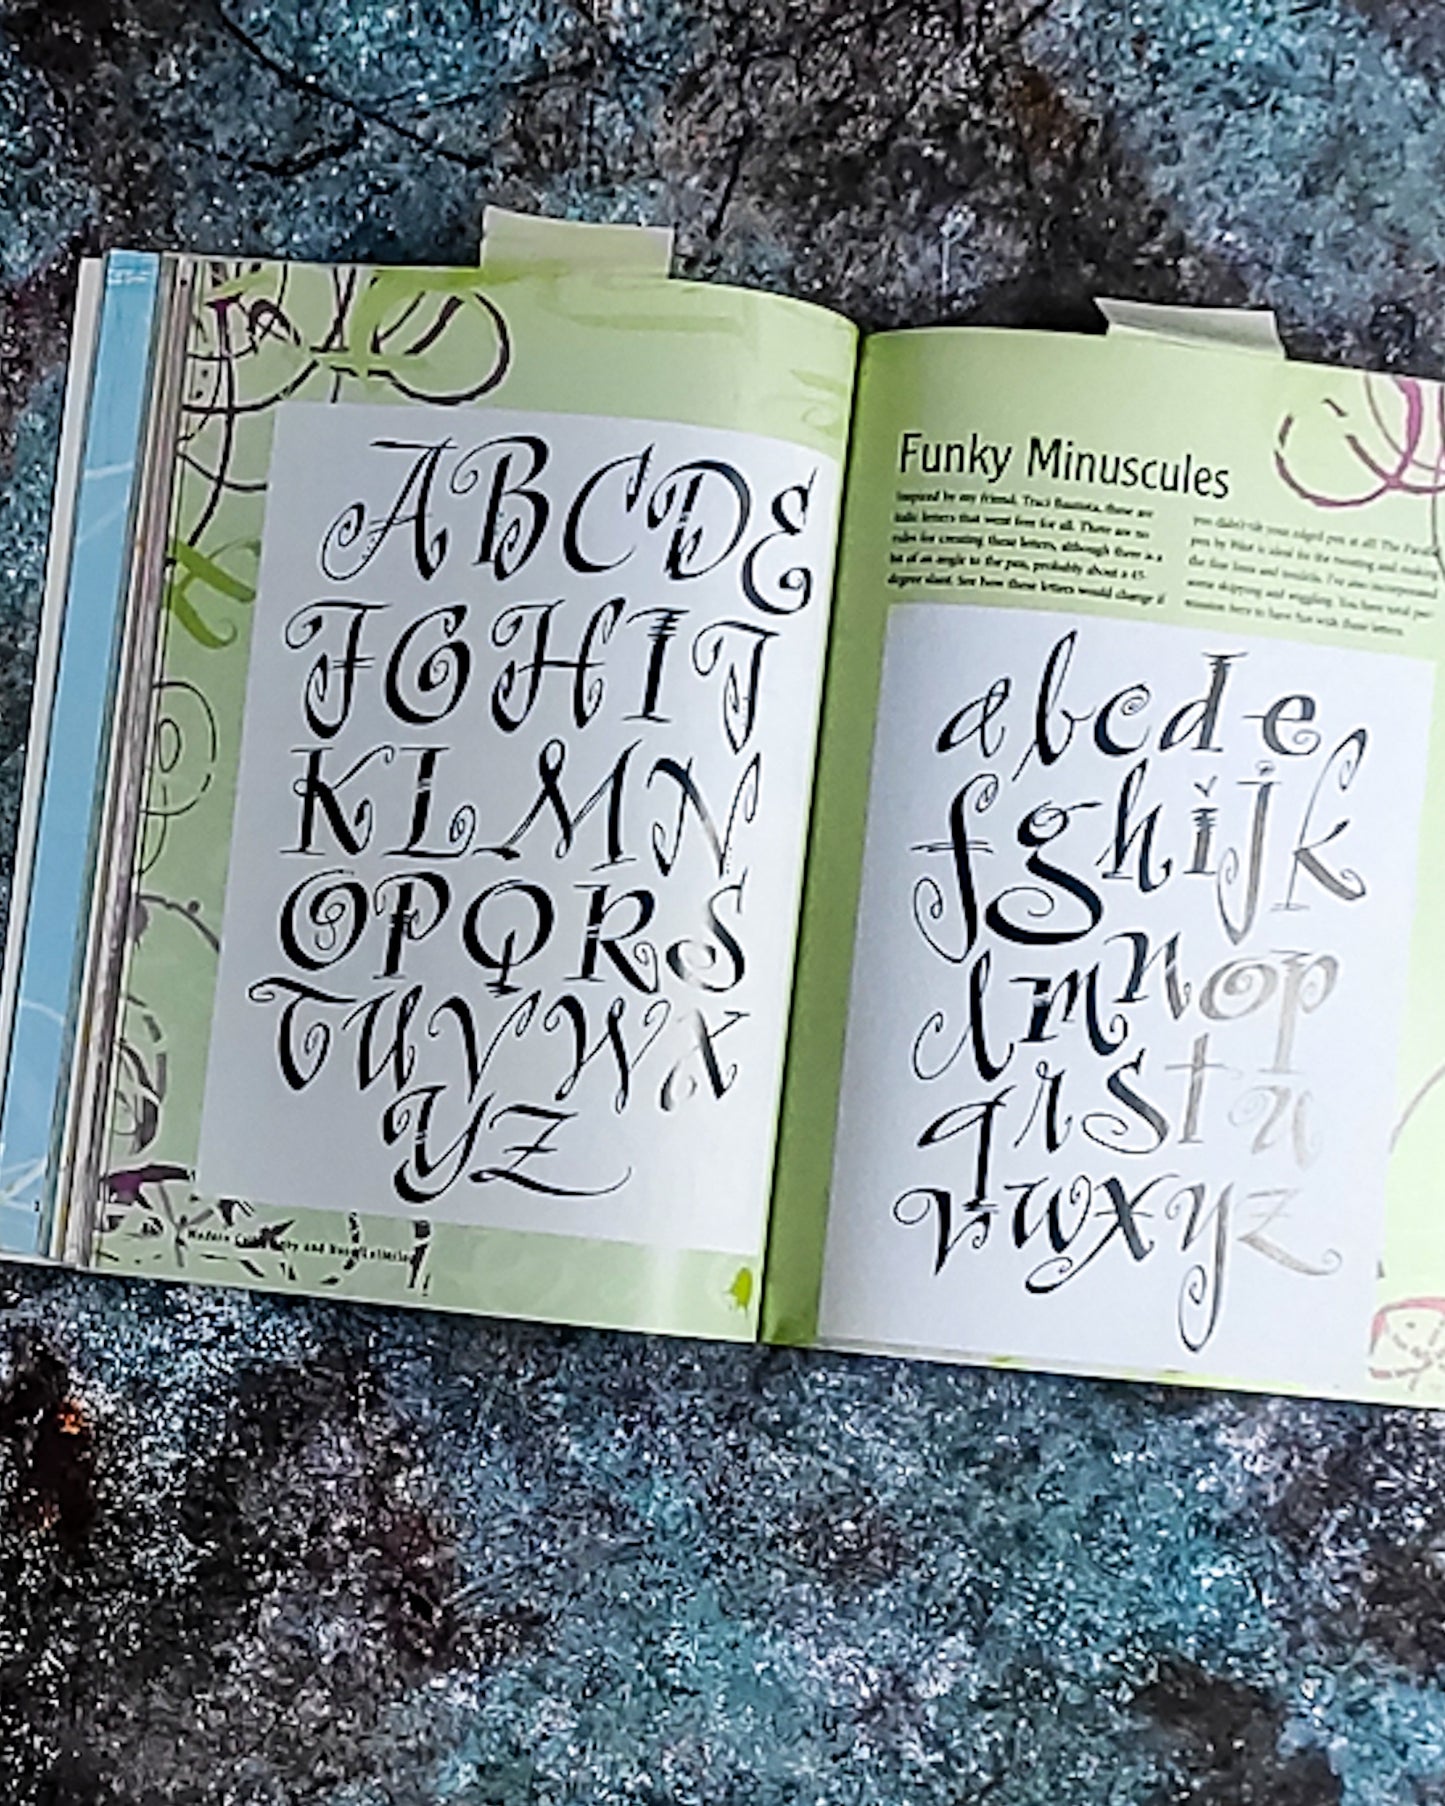 ABCDE
FGHIJ
KLMN
OPQRS
TUVWX
YZ
Funky Minuscules
Inspired by my friend, Traci Bautista, these are
italic letters that went free for all. There are no
rules for creating these letters, although there is a
bit of an angle to the pen, probably about a 45-
degree slant. See how these letters would change if
you didn't tilt your edged pen at all! The Parallel
pen by Pilot is ideal for the twisting and making
the fine lines and tendrils. I've also incorporated
some skipping and wiggling. You have total per-
mission here to have fun with these letters.
abcde
fghijk
lmnop
qrstu
vwxyz